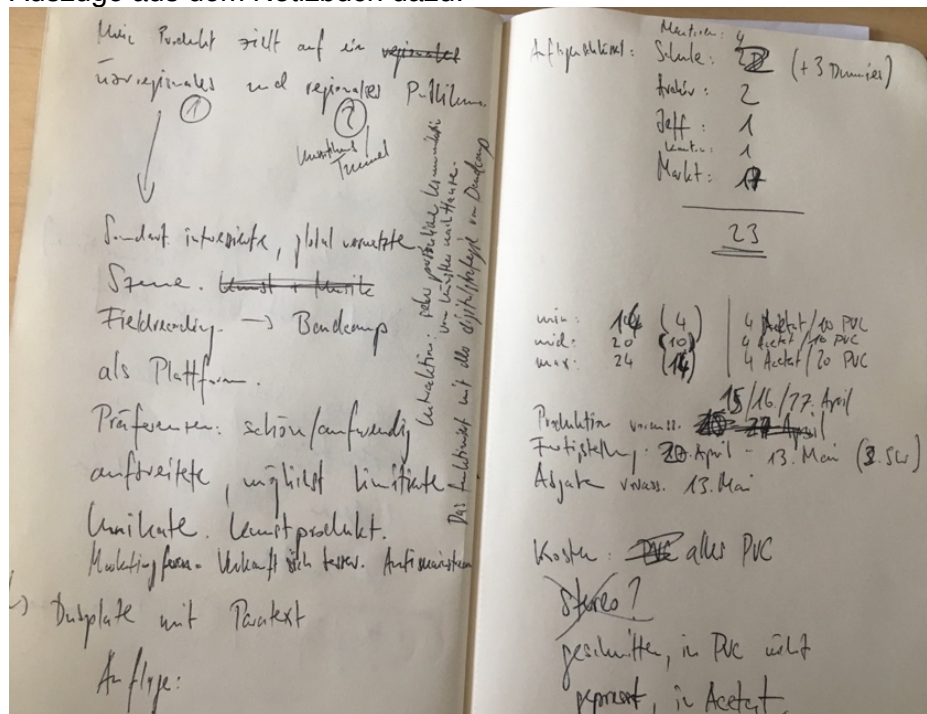 Auszüge aus dem Notizbuch dazu:
Mein Produkt zielt auf ein regionales
überregionales und regionales Publikum.
1 2
Tunnel
Soundart interessierte, global vernetzte
Szene. Kunst + Musik
Fieldrecording. → Bandcamp
als Plattform.
Präferenzen: schön/aufwendig
aufbereitete, möglichst limitierte
Unikate. Kunstprodukt.
Marketingform. Verkauft sich besser. Antimainstream
→ Dubplate mit Paratext
Auflage:
Interaktion: sehr persönliche Kommunikation
von Künstler nach Hause.
Das funktioniert mit der digitalstrategie von Bandcamp
Auflagenschlüssel:
4
Schule: 2 (+ 3 Dummies)
Archiv: 2
Jeff: 1
1
Markt: 17
23
min: 14 (4) | 4 Acetat/10 PVC
mid: 20 (10) | 4 Acetat/10 PVC
max: 24 (14) | 4 Acetat/20 PVC
15/16./17. April
Produktion vorauss. April
Fertigstellung: 20. April - 13. Mai
Abgabe vorauss. 13. Mai
Kosten: PVC alles PVC
Stereo?
geschnitten, in PVC nicht
gepresst, in Acetat.